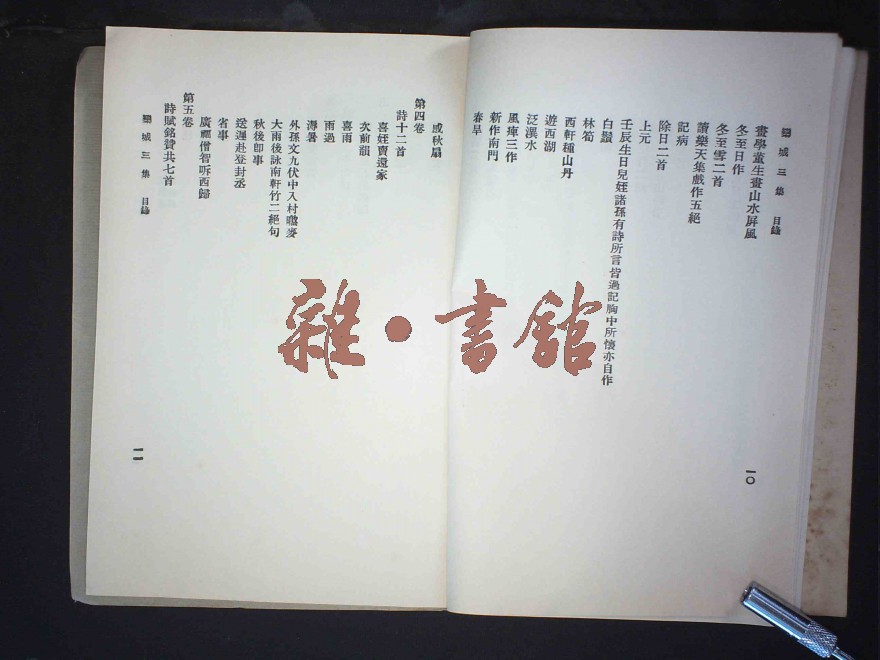 欒城三集 目錄
畫學董生畫山水屏風
冬至日作
冬至雪二首
讀樂天集戲作五絕
記病
除日二首
上元
壬辰生日兒姪諸孫有詩所言皆過記胸中所懷亦自作
白鬚
林筍
西軒種山丹
遊西湖
泛潩水
風痺三作
新作南門
春旱
一〇
感秋扇
第四卷
詩十二首
喜姪賣還家
次前韻
喜雨
雨過
溽暑
外孫文九伏中入村曬麥
大雨後詠南軒竹二絕句
秋後卽事
送遲赴登封丞
省事
廣福僧智昕西歸
第五卷
詩賦銘贊共七首
欒城三集 目錄
一一
雜·書館